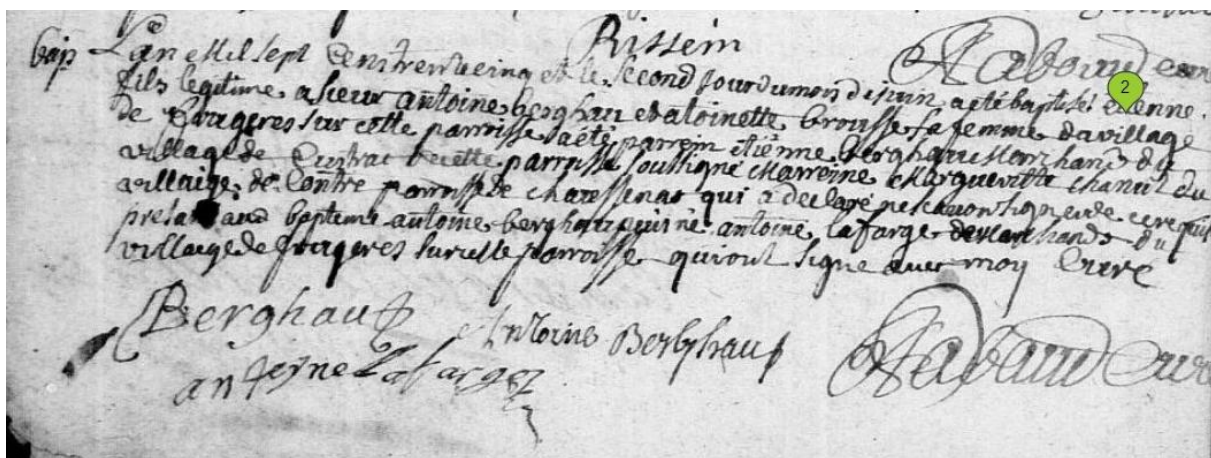 Rissein
Nabaud curé
bap L'an mil sept cens trente cinq et le second jour du mois de juin a été baptisé etienne
fils legitime a sieur antoine berghau et atoinette brousse sa femme du village
de fougeres sur cette parroisse a été parrein etienne berghau marchand du
village de Custrac de cette parroisse soussigné marreine marguerite chanut du
villaige de Contre parroisse de qui a declaré ne scavoir signer de ce requis
presant aud bapteme antoine berghau puisné antoine lafarge marchands du
villaige de fougeres sur cette parroisse qui ont signe avec moy Curé
Berghaud antoine Berghaud Nabaud curé
antoine Lafarge
2